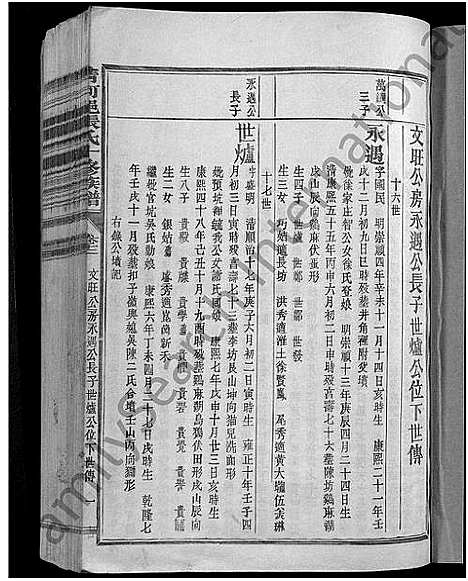 文旺公房永遇公長子世爐公位下世傳
十六世
萬護公
三子
永遇
字國民 明崇禎四年辛未十一月十四日亥時生 康熙二十一年壬
戌十二月初九日巳時歿墓井角裡附父墳
娶徐家庄智公女徐氏登娘 明崇禎十三年庚辰四月二十四日亥時生
清康熙五十五年丙申六月初二日申時歿享壽七十七墓陳坊鷄麻湖
戌山辰向鷄麻伏並形
生四子 世爐 世 世鄒 世發
生三女 巧姑適長坊 洪秀適灌土徐賢鳳 尾秀適黃大隴伍 琳
十七世
永遇公
長子
世爐
字盛明 清順治十七年庚子六月初二日寅時生 雍正十年壬子四
月初三日寅時歿享壽七十三墓李坊艮山坤向猫兒洗面形
娶預坑 我公女蕭氏國娘 康熙七年戊申十月廿三日亥時生
康熙四十八年己丑十月十九酉時歿墓鷄麻湖烏鴉伏田形戌山辰向
生八子 貴毅 貴 貴學 貴 貴 貴覺 貴
生二女 銀姑 盧秀適 尚新禾
繼娶官坑吳氏勤娘 康熙六年丁未四月二十七日戌時生 乾隆七
年壬戌十一月歿墓和子嶺與繼吳陳二氏合墳壬山丙向獅形
右錄公墳記
張氏十修族譜
卷 文旺公房永遇公長子世爐公位下世傳 一
familysearch international